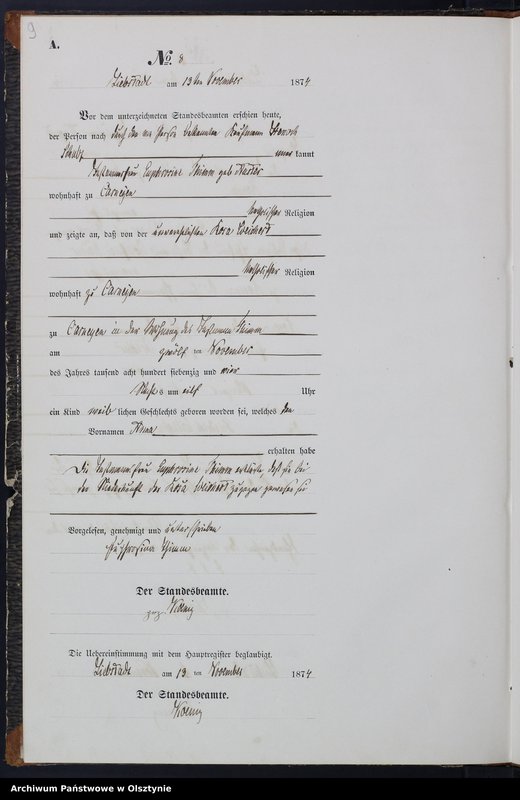 9
A.
No. 8
Liebstadt am 13ten November 1874
Vor dem unterzeichneten Standesbeamten erschien heute,
der Person nach durch den von Person bekannten Kaufmann
Schulz kannt
Instmannfrau Euphrosine Thimm geb
wohnhaft zu Carneyen
Religion
und zeigte an, daß von der unverehelichten Rosa
Religion
wohnhaft zu Carneyen
zu Carneyen in der Wohnung des Instmann Thimm
am zwölf ten November
des Jahres tausend acht hundert siebenzig und vier
Nachts um elf Uhr
ein Kind weib lichen Geschlechts geboren worden sei, welches den
Vornamen Anna
erhalten habe
Die Instmannfrau Euphrosine Thimm erklärte, daß sie bei
der Niederkunft der Rosa zugegen gewesen sei
Vorgelesen, genehmigt und unterschrieben
Euphrosina Thimm
Der Standesbeamte.
gez. Koenig
Die Uebereinstimmung mit dem Hauptregister beglaubigt.
Liebstadt am 13 ten November 1874
Der Standesbeamte.
Koenig
Archiwum Państwowe w Olsztynie